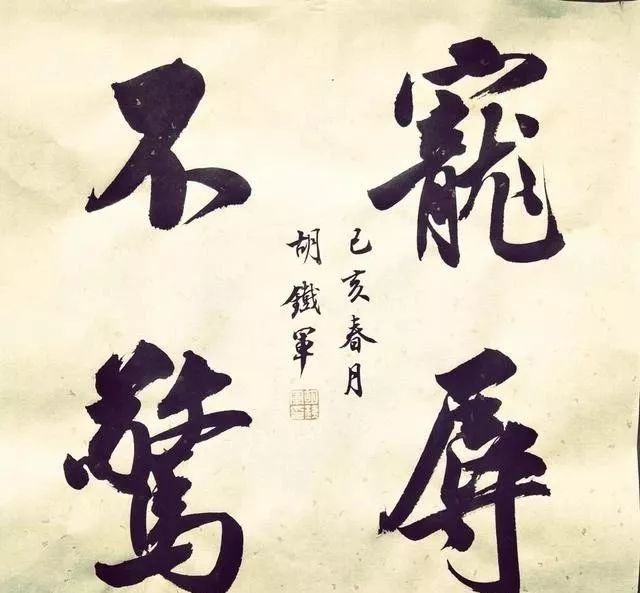 寵辱
不驚
己亥春月
胡鐵軍